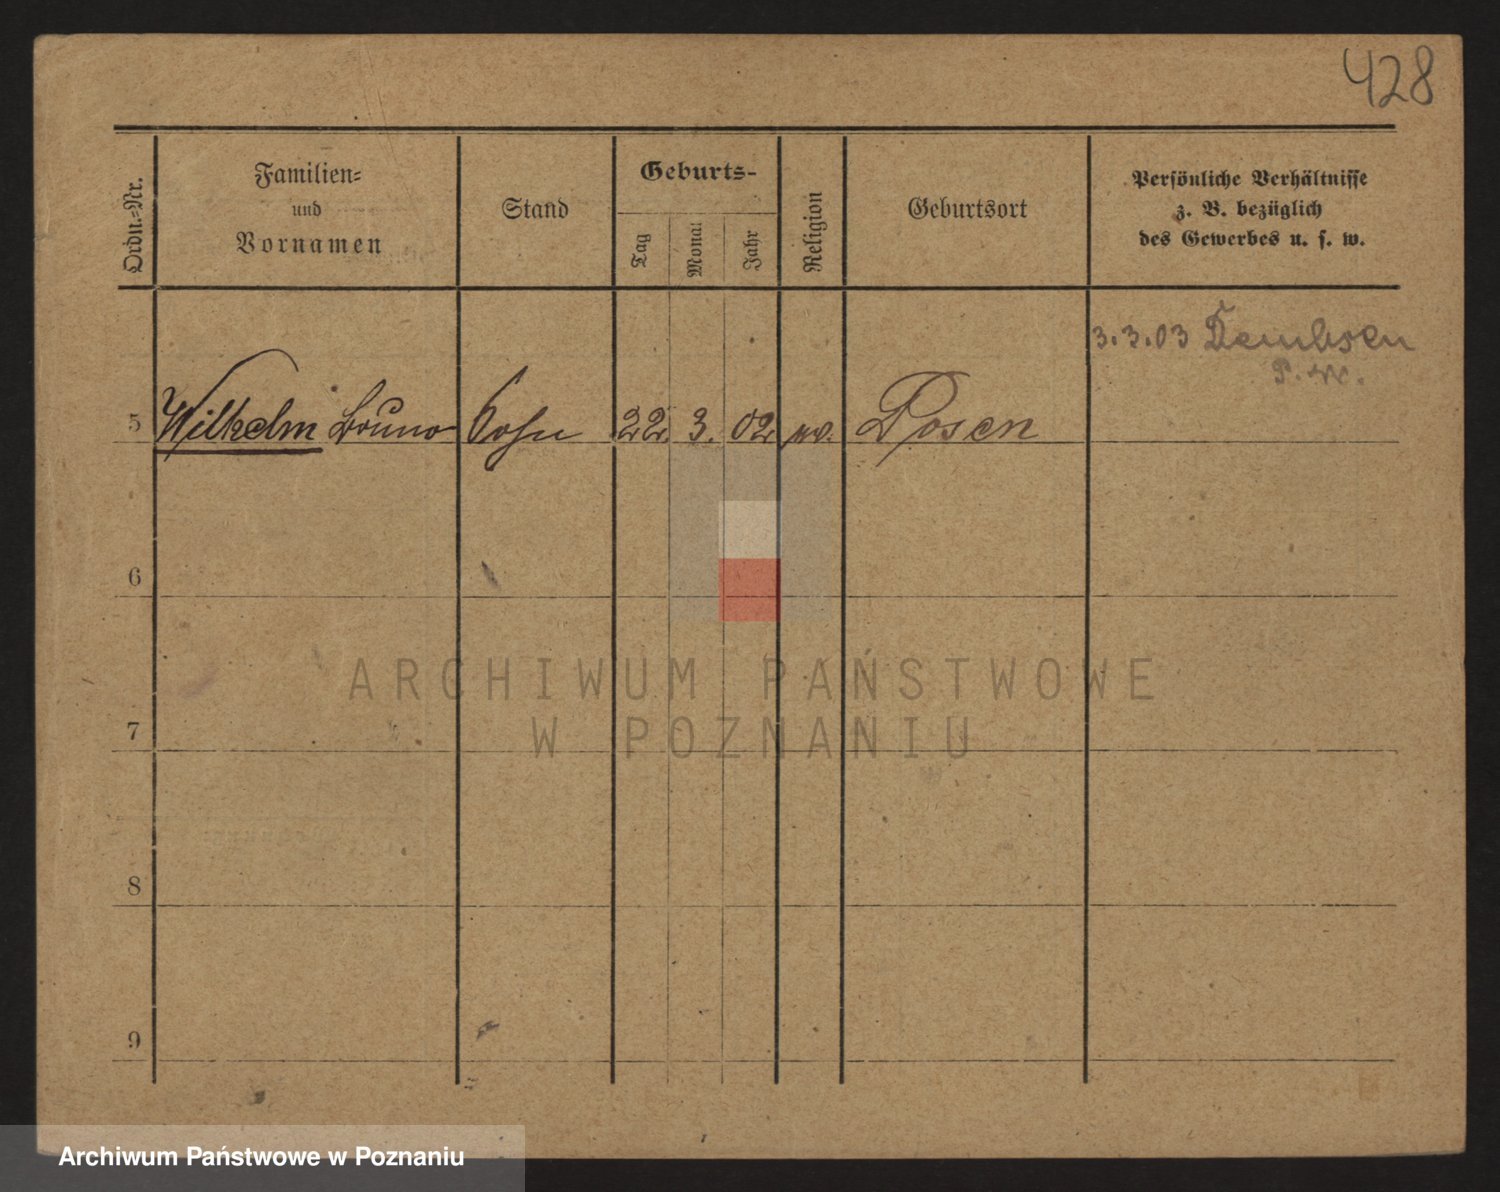 428
Ordn.-Nr.
Familien-
und
Vornamen
Stand
Geburts-
Tag
Monat
Jahr
Religion
Geburtsort
Persönliche Verhältnisse
z. B. bezüglich
des Gewerbes u. s. w.
3.3.03 Dembsen
P. W.
5 Wilhelm Bruno Sohn 22. 3. 02 ev. Posen
6
7
8
9
ARCHIWUM PAŃSTWOWE
W POZNANIU
Archiwum Państwowe w Poznaniu